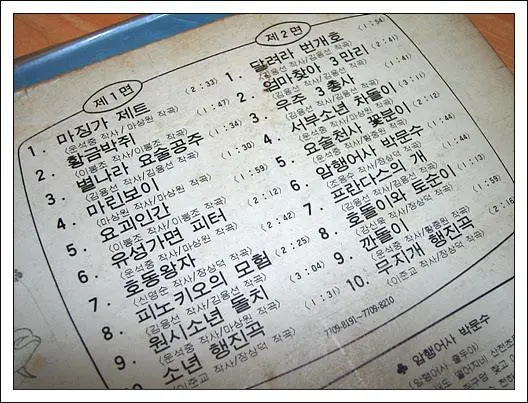 제1면
1. 마징가 제트 (2:33)
(윤석중 작사/마상원 작곡)
2. 황금박쥐 (1:47)
(이봉조 작사/이봉조 작곡)
3. 별나라 요술공주 (1:34)
(김용선 작사/김용선 작곡)
4. 마린보이 (1:30)
(마상원 작사/마상원 작곡)
5. 요괴인간 (1:59)
(이봉조 작사/이봉조 작곡)
6. 유성가면 피터 (2:12)
(윤석중 작사/마상원 작곡)
7. 호동왕자 (2:42)
(신영순 작사/장상덕 작곡)
8. 피노키오의 모험 (2:25)
(김용선 작사/김용선 작곡)
9. 원시소년 돌치 (3:04)
(윤석중 작사/마상원 작곡)
10. 소년 행진곡 (1:31)
(이준교 작사/장상덕 작곡)
제2면
1. 달려라 번개호 (1:54)
(김용선 작사/김용선 작곡)
2. 엄마찾아 3만리 (2:41)
(김용선 작사/김용선 작곡)
3. 우주 3총사 (1:41)
4. 서부소년 차돌이 (3:11)
5. 요술천사 꽃분이 (2:12)
6. 암행어사 박문수 (1:44)
(조용수 작사/장상덕 작곡)
7. 프란다스의 개 (1:44)
(김용선 작사/김용선 작곡)
8. 호돌이와 토순이 (1:13)
(김신욱 작사/장상덕 작곡)
9. 깐돌이 (1:59)
(윤석중 작사/황종원 작곡)
10. 무지개 행진곡
(이준교 작사/장상덕 작곡)
7709-8191~7709-8210
♣ 암행어사 박문수